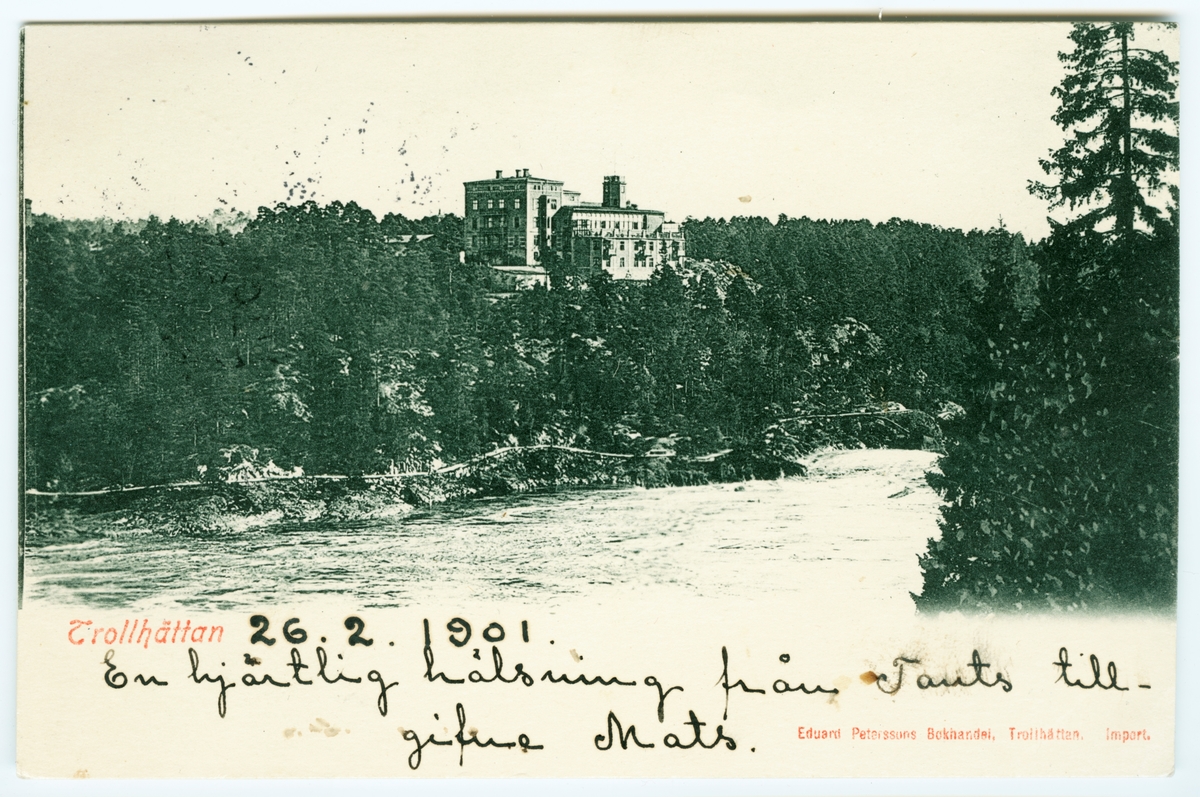 Trollhättan 26.2.1901.
En hjärtlig hälsning från Tants till-
gifne Mats.
Eduard Peterssons Bokhandel, Trollhättan. Import.